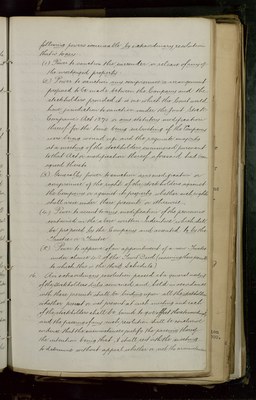 following powers exercisable by extraordinary resolution
that is to say:—
(1) Power to sanction the
the mortgaged property.
(2) Power to sanction any compromise or arrangement
proposed to be made between the Company and the
stockholders provided it is one which the Court would
have jurisdiction to sanction under the Joint Stock
Companies Act 1870 or any statutory modification
thereof for the time being as if the Company
were being wound up and the requisite majority
at a meeting of the stockholders summoned pursuant
to that Act or modification thereof
agreed thereto
(3) Generally power to sanction any modification or
compromise of the rights of the stockholders against
the Company or against its property whether such rights
shall arise under these presents or otherwise.
(4) Power to assent to any modification of the provisions
contained in these presents which shall
be proposed by the Company and assented to by the
Trustees or Trustee
(5) Power to approve of an appointment of a new Trustee
under clause of the Trust Deed
to which this is the Schedule
16. An extraordinary resolution passed at a general meeting
of the stockholders duly convened and held in accordance
with these presents shall be binding upon all the stockholders
whether present or not present at such meeting and each
of the stockholders shall be bound to give effect thereto
and the passing of any such resolution shall be conclusive
evidence that the circumstances justify the passing thereof
the intention being that it shall rest with the meeting
to determine without appeal whether or not the circumstances